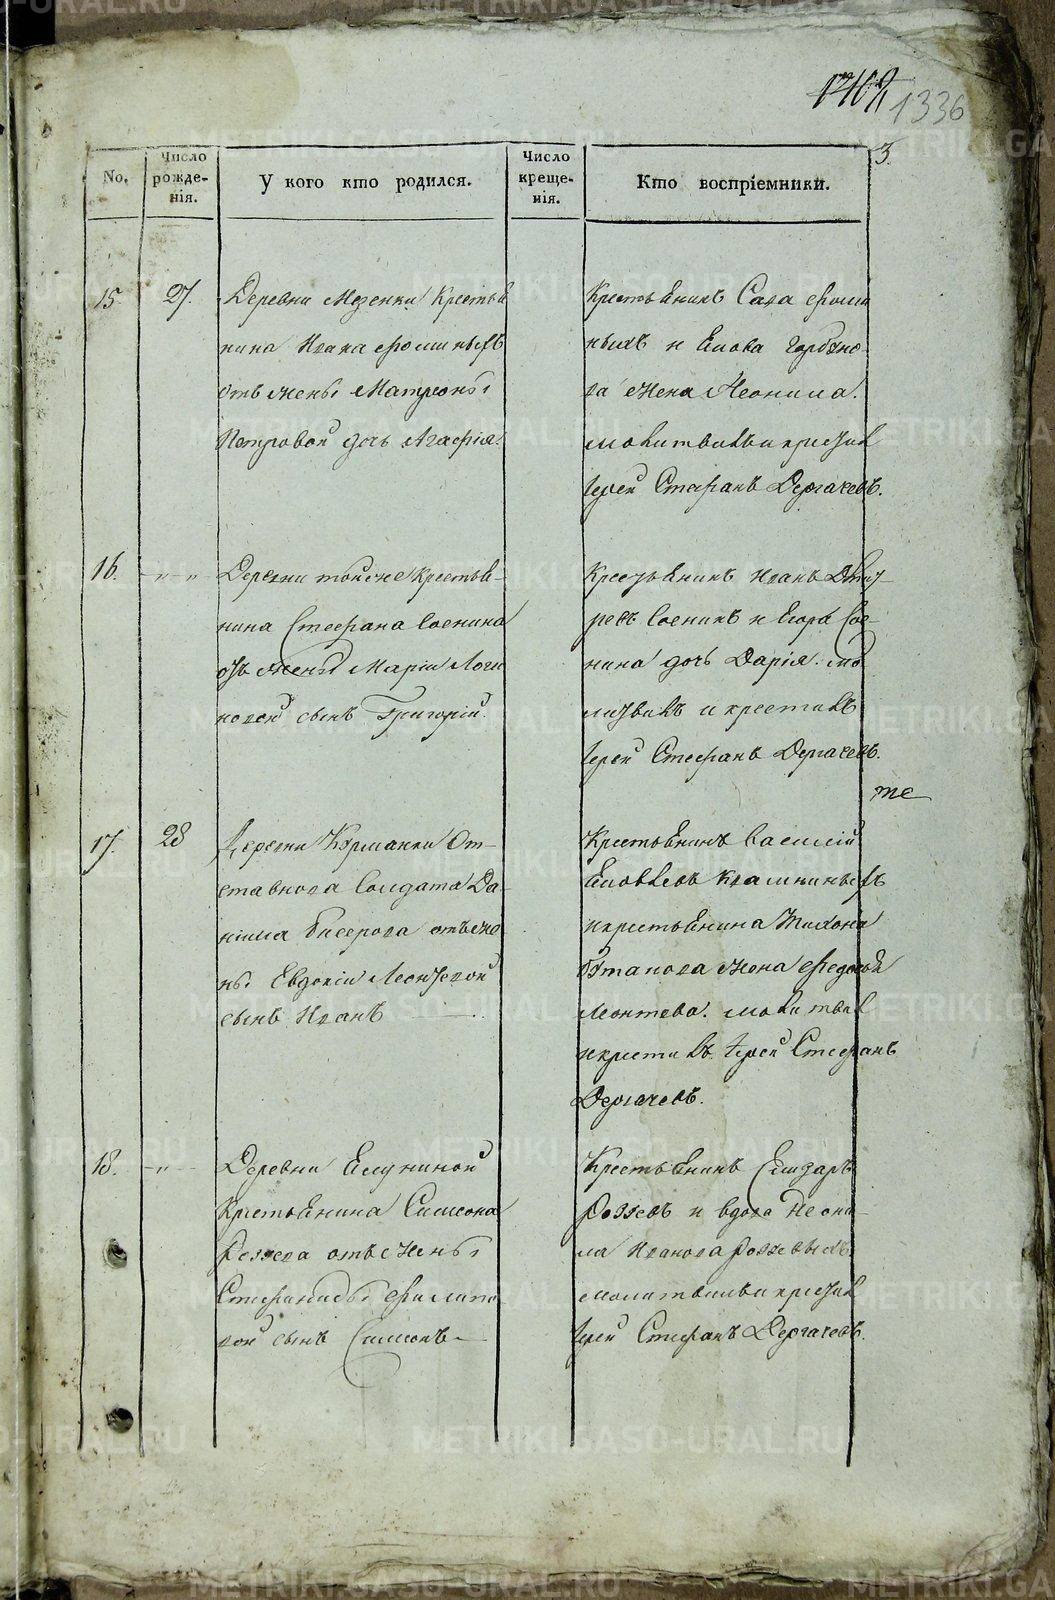 1336
3.
No.
Число рожде-нія.
У кого кто родился.
Число креще-нія.
Кто воспріемники.
15. 27.
Деревни Мезенки Крестья
нина Ивана Фоминыхъ
отъ жены Матроны
Петровой дочь Агафія.
Крестьянинъ Сава Фоми
ныхъ и
ва жена Неонила.
молитвилъ и крестил
Іерей Стефанъ Дергачевъ.
16. -"-"
Деревни тойже Крестья-
нина Стефана Соснина
отъ жены Маріи Логи
новой сынъ Григорій.
Крестьянинъ Иванъ
Соснинъ и Егора Сос-
нина дочь Дарія. мо
литвилъ и крестилъ
Іерей Стефанъ Дергачевъ.
те
17. 28
Деревни Курманки От-
ставнова Солдата Да-
ніила Бисерова отъ же
ны Евдокіи Леонтевой
сынъ Иванъ
Крестьянинъ Василій
и крестьянина Тихона
жена
Леонтева. молитвил
и крестилъ Іерей Стефанъ
Дергачевъ.
18. -"-
Деревни Елуниной
Крестьянина Симеона
отъ жены
Стефаниды Филипо
вой сынъ Симеонъ
Крестьянинъ
и вдова Неони-
ла Иванова
молитвилъ и крестил
Іерей Стефанъ Дергачевъ.
METRIKI.GASO-URAL.RU